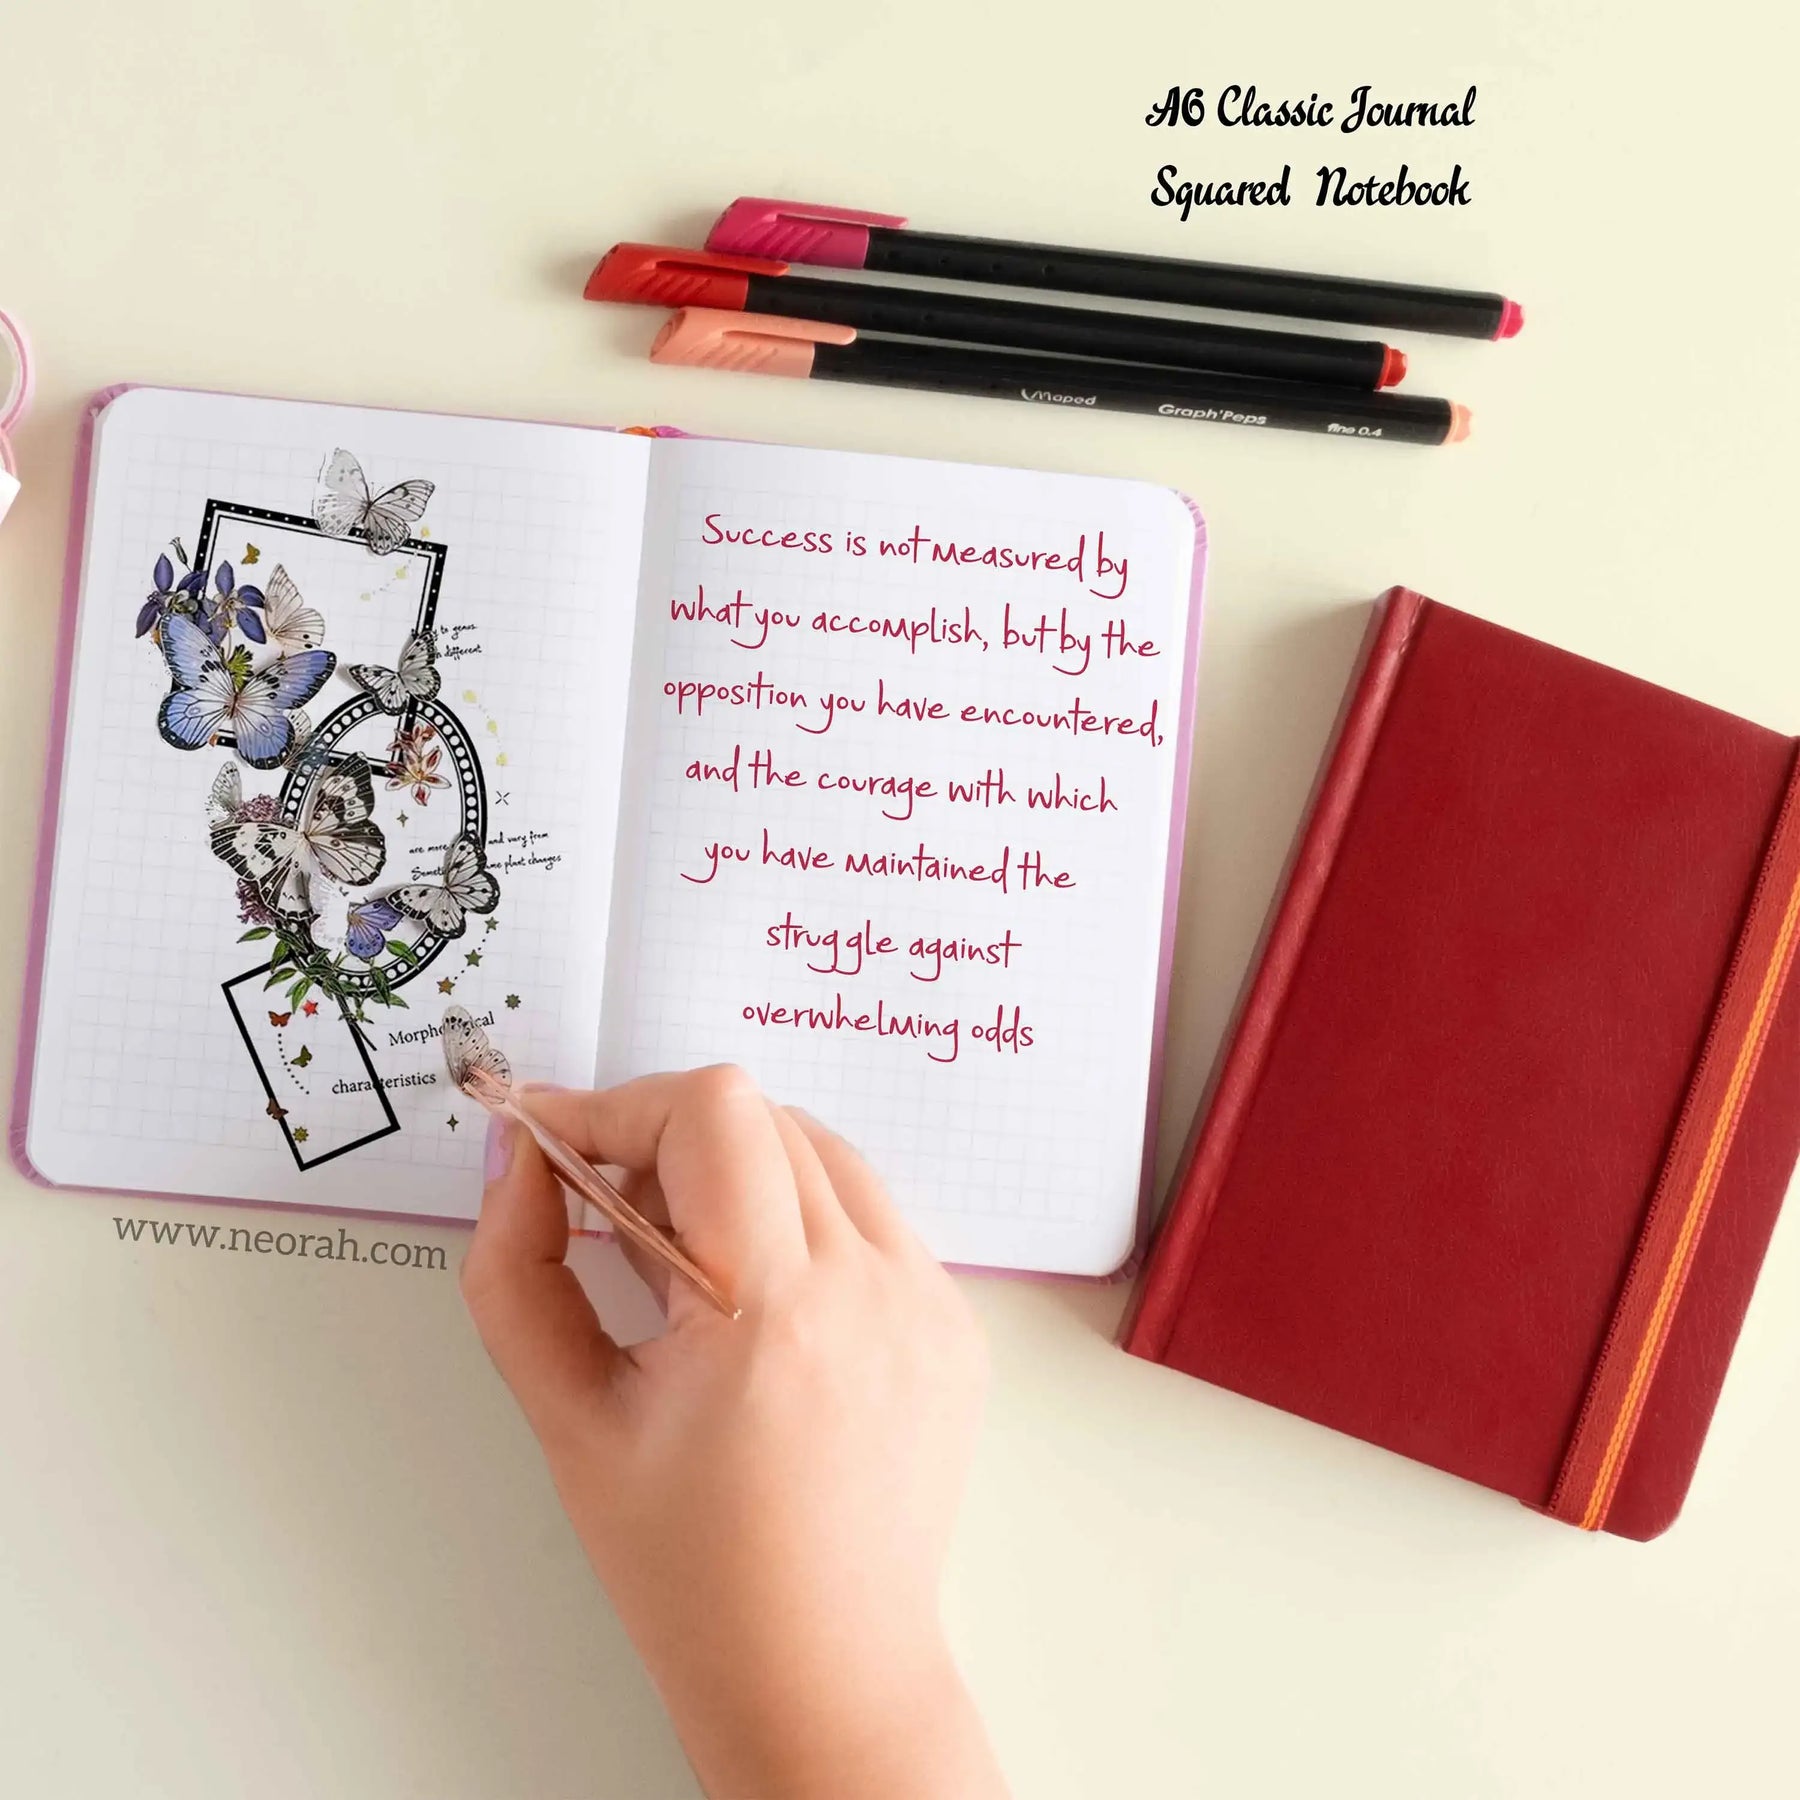 A6 Classic Journal
Squared Notebook
Maped Graph'Peps fine 0.4
to genus
different
are more and vary from
me plant changes
characteristics
Success is not measured by
what you accomplish, but by the
opposition you have encountered,
and the courage with which
you have maintained the
struggle against
overwhelming odds
www.neorah.com